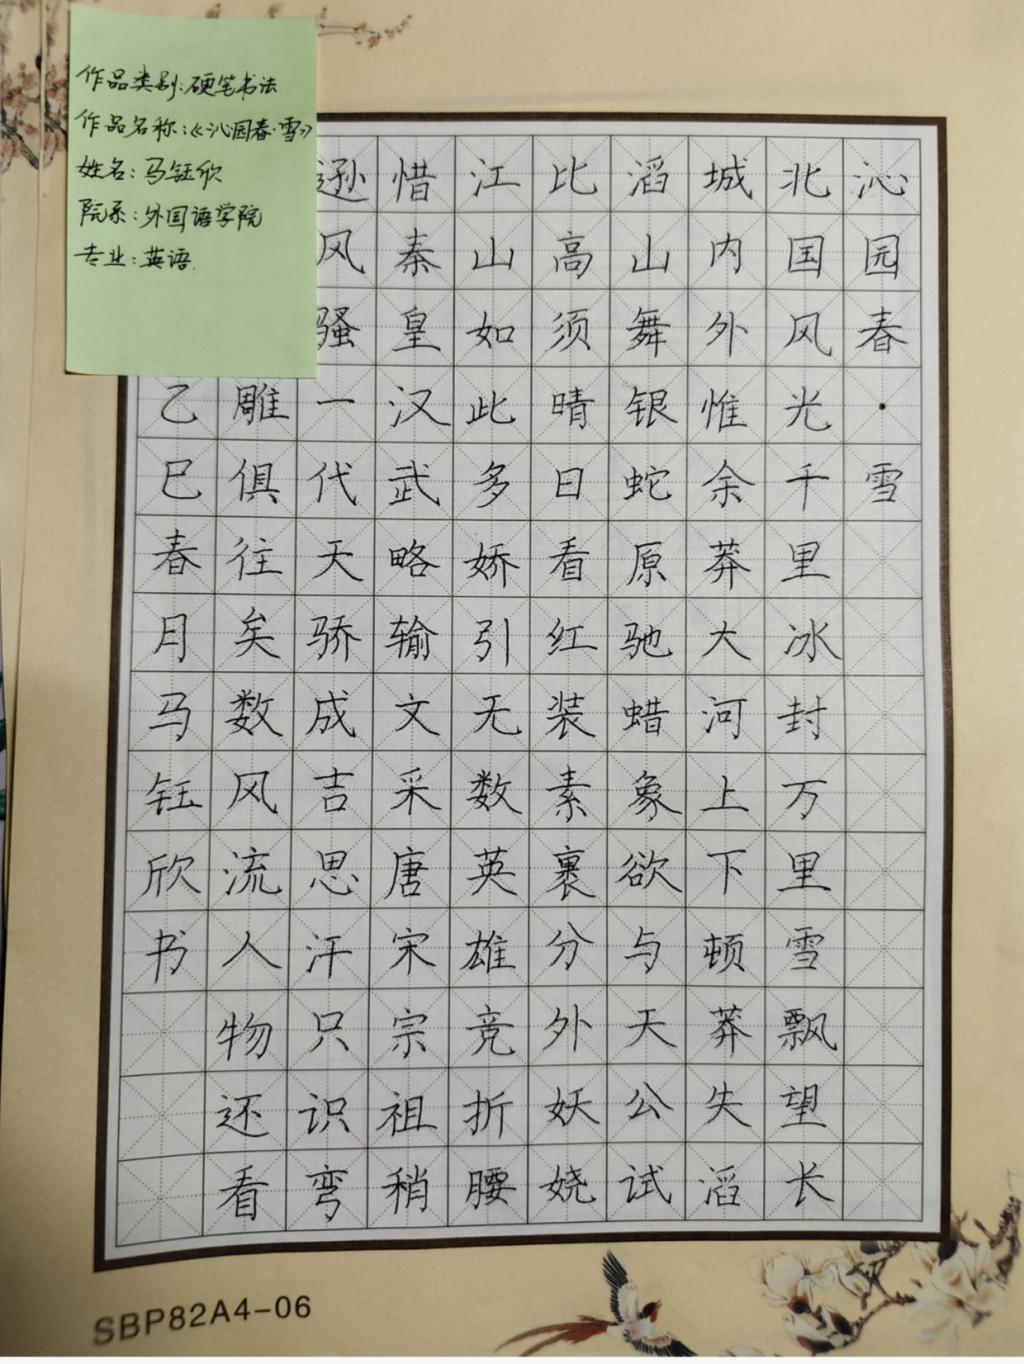 作品类别:硬笔书法
作品名称:《沁园春·雪》
姓名:马钰欣
院系:外国语学院
专业:英语.
沁园春·雪
北国风光千里冰封万里雪飘望长
城内外惟余莽大河上下顿莽失滔
滔山舞银蛇原驰蜡象欲与天公试
比高须晴日看红装素裹分外妖娆
江山如此多娇引无数英雄竞折腰
惜秦皇汉武略输文采唐宋宗祖稍
逊风骚一代天骄成吉思汗只识弯
雕俱往矣数风流人物还看
乙巳春月马钰欣书
SBP82A4-06